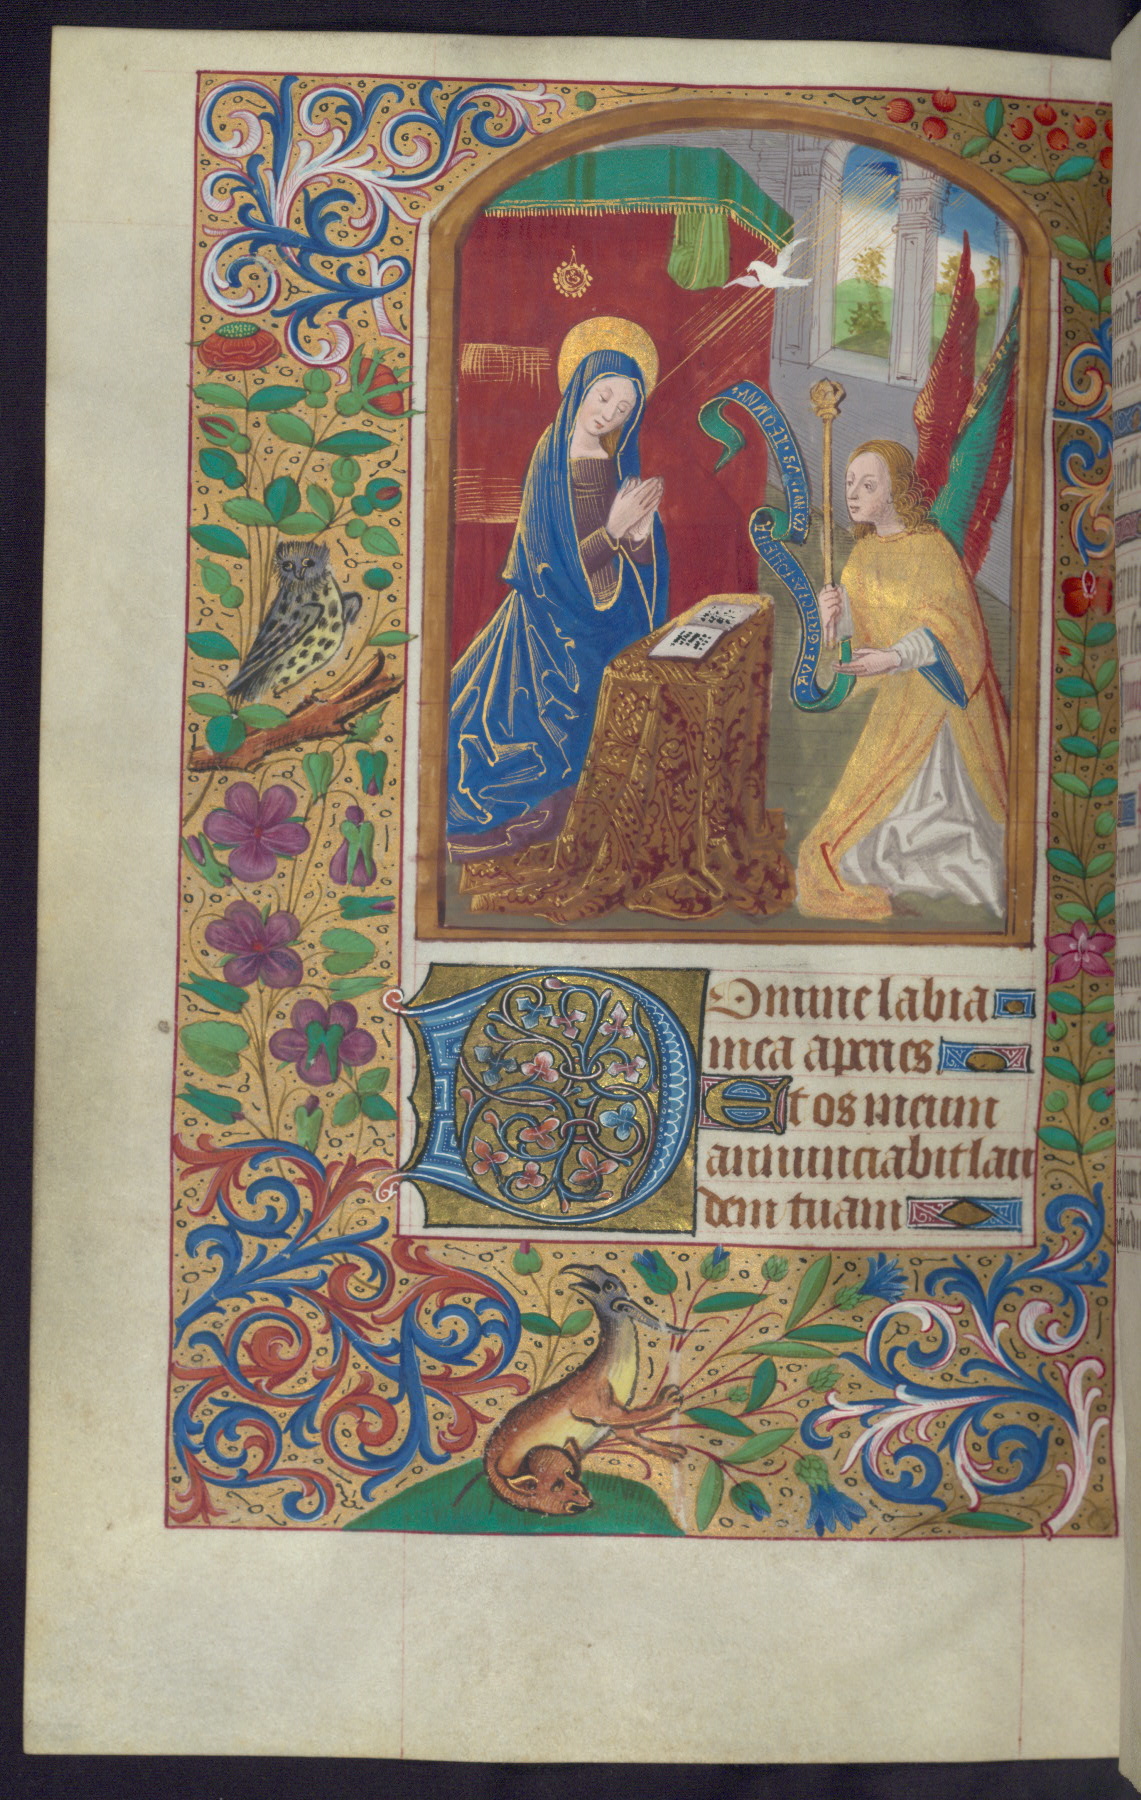 AVE · GRACIA · PLENA
Domine labia
mea aperies
Et os meum
annunciabit lau
dem tuam